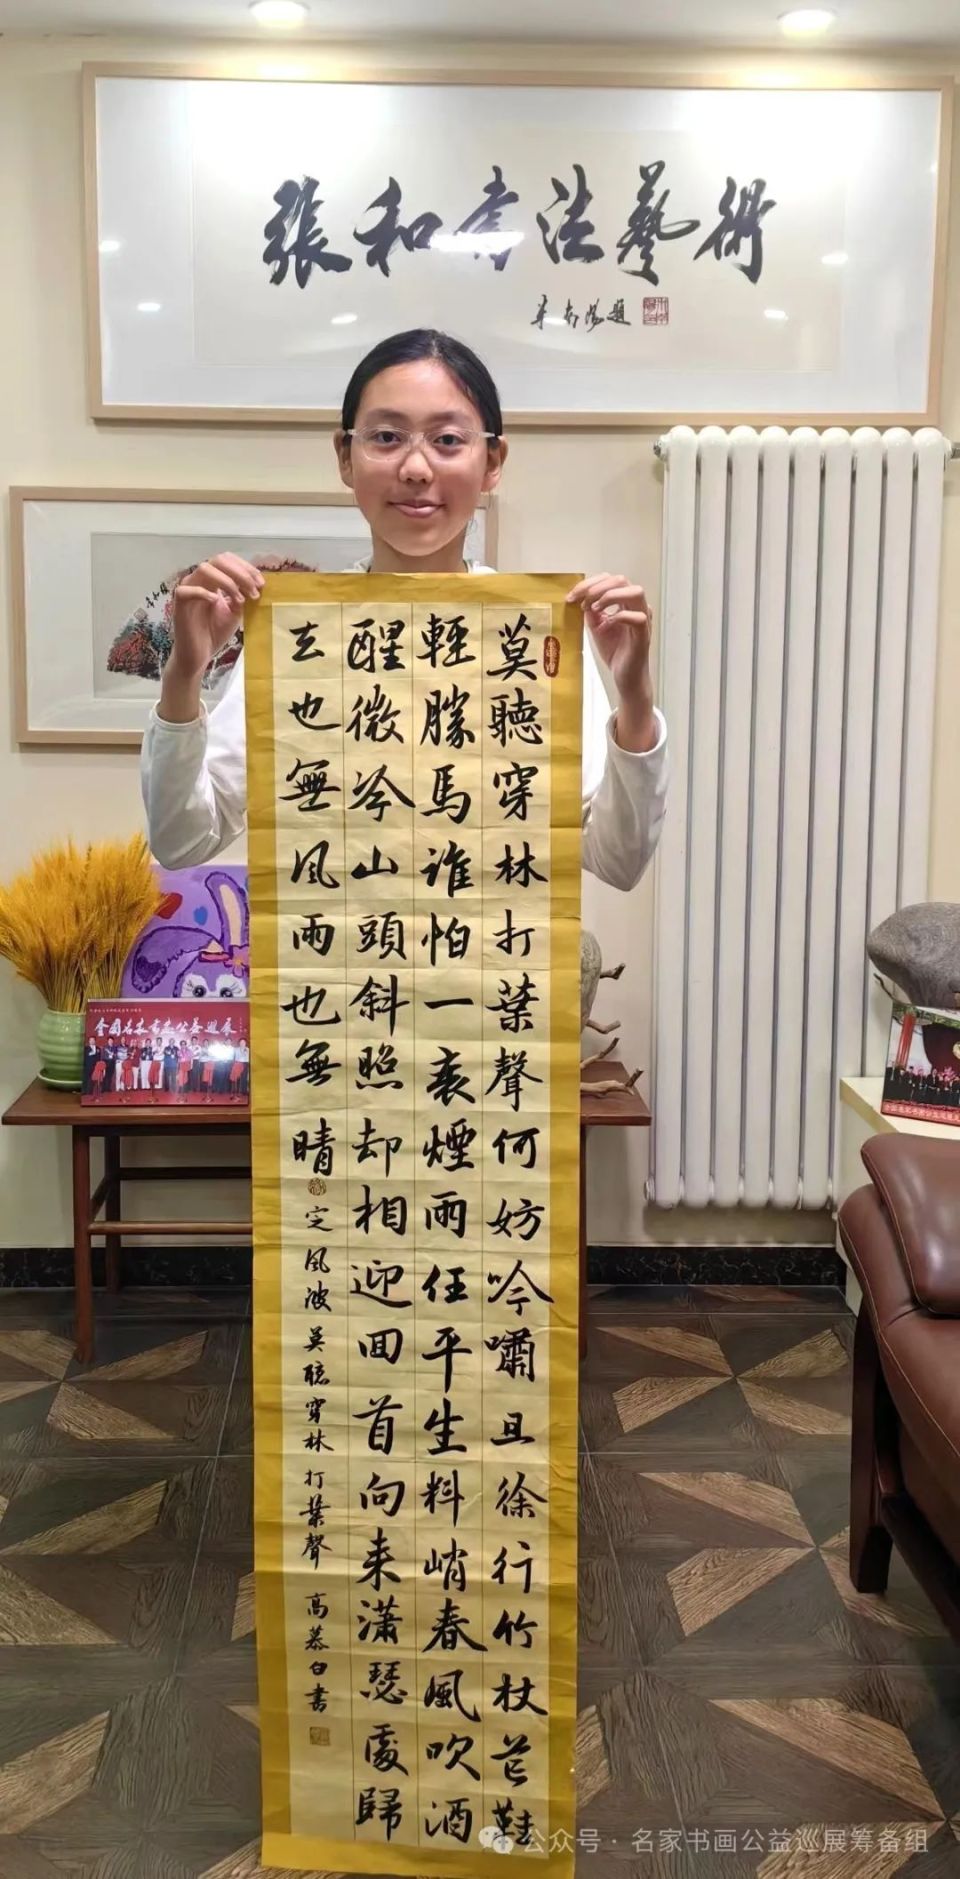 張和書法藝術
莫聽穿林打葉聲何妨吟嘯且徐行竹杖芒鞋
輕勝馬誰怕一衰煙雨任平生料峭春風吹酒
醒微冷山頭斜照却相迎回首向来瀟瑟處歸
去也無風雨也無晴 定風波 莫聽穿林打葉聲 高慕白書
全國名家書畫公益巡展
公众号·名家书画公益巡展筹备组